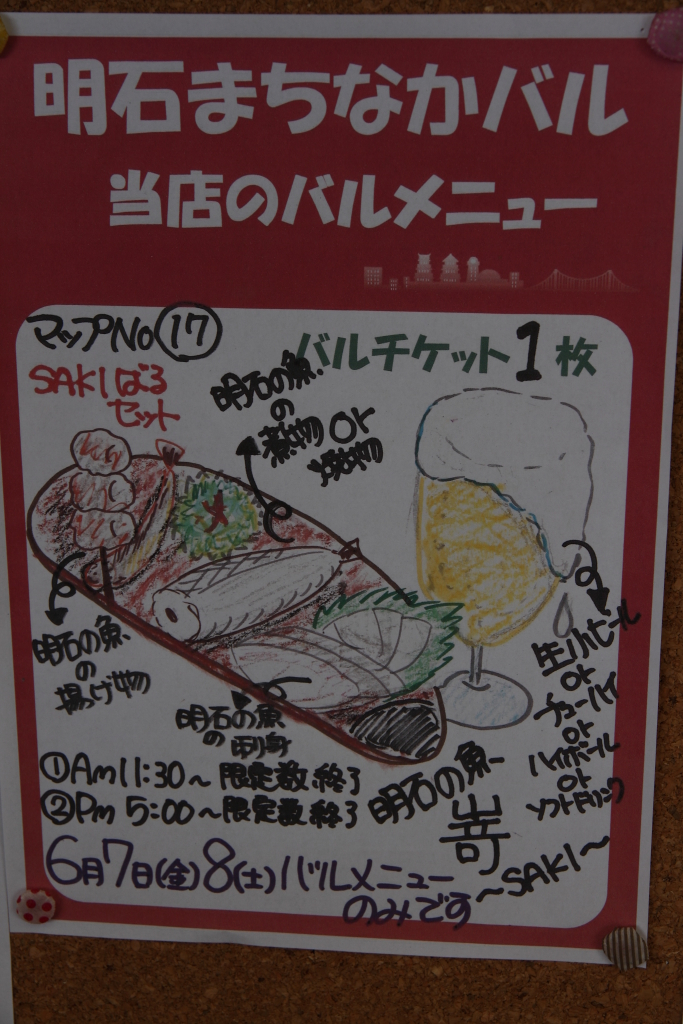 明石まちなかバル
当店のバルメニュー
マップNo⑰
バルチケット1枚
SAKIばる
セット
明石の魚
の
煮物 or
焼物
明石の魚
の
揚げ物
明石の魚
の刺身
生小ビール
or
チューハイ
or
ハイボール
or
ソフトドリンク
①Am11:30〜限定数終了
②Pm5:00〜限定数終了
明石の魚
嵜
〜SAKI〜
6月7日(金)8(土)バルメニュー
のみです